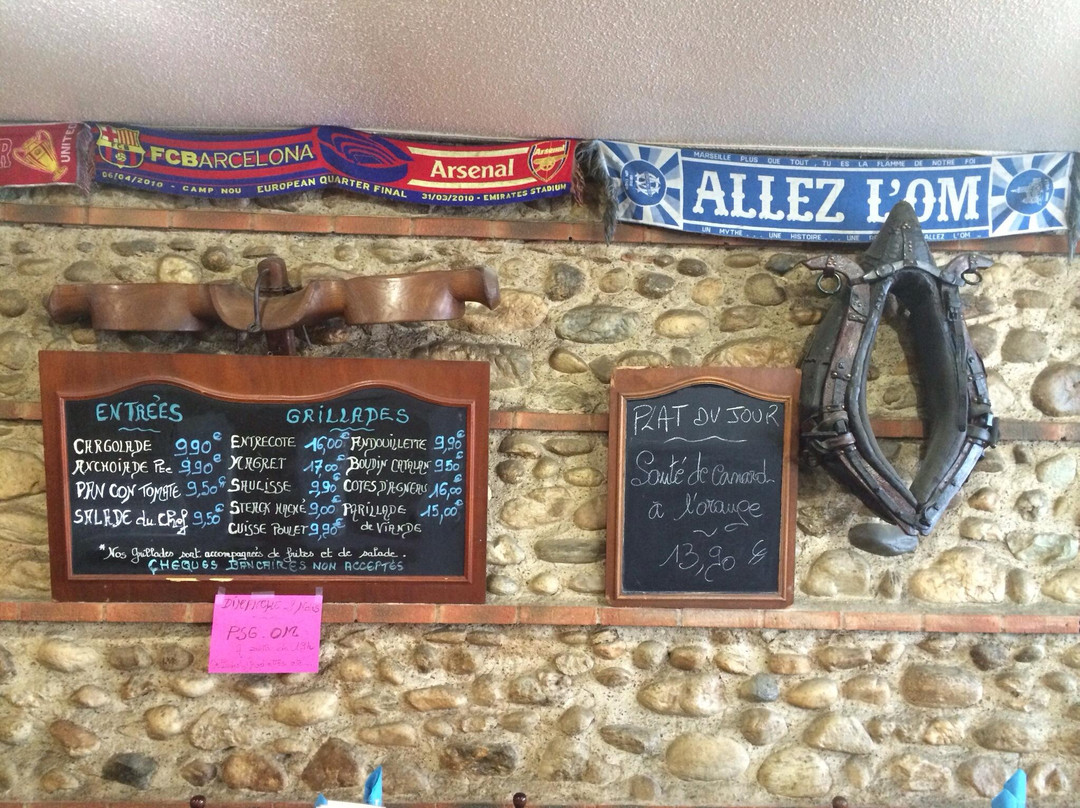 UNITED
FCBARCELONA
Arsenal
Arsenal
06/04/2010 - CAMP NOU EUROPEAN QUARTER FINAL 31/03/2010 - EMIRATES STADIUM
MARSEILLE PLUS QUE TOUT, TU ES LA FLAMME DE NOTRE FOI
ALLEZ L'OM
UN MYTHE ... UNE HISTOIRE ... UNE ALLEZ L'OM
ENTRÉES
CARGOLADE 9,90€
ANCHOIADE 9,90€
PAN CON TOMATE 9,50€
SALADE du Chef 9,50€
GRILLADES
ENTRECOTE 16,00€
MAGRET 17,00€
SAUCISSE 9,90€
STEACK HACHÉ 9,00€
CUISSE POULET 9,90€
ANDOUILLETTE 9,90€
BOUDIN CATALAN 9,50€
COTES D'AGNEAU 16,00€
PARILLADE 15,00€
de VIANDE
*Nos Grillades sont accompagnés de frites et de salade.
CHEQUES BANCAIRES NON ACCEPTÉS
PLAT DU JOUR
Sauté de canard
à l'orange
13,90 €
PSG - OM